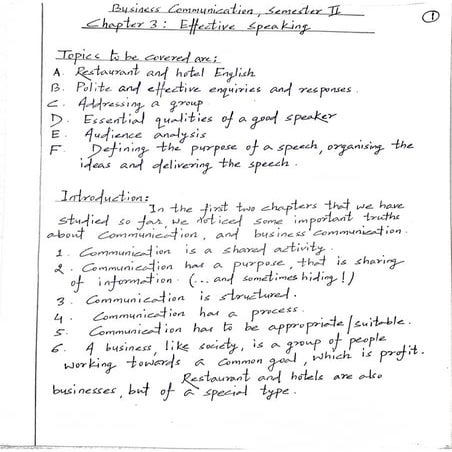 Business Communication, Semester II
1
Chapter 3: Effective Speaking
Topics to be covered are:
A. Restaurant and hotel English
B. Polite and effective enquiries and responses.
C. Addressing a group
D. Essential qualities of a good speaker
E. Audience analysis
F. Defining the purpose of a speech, organising the
ideas and delivering the speech.
Introduction:
In the first two chapters that we have
studied so far, we noticed some important truths
about communication, and business communication.
1. Communication is a shared activity.
2. Communication has a purpose, that is sharing
of information. (... and sometimes hiding!)
3. Communication is structured.
4. Communication has a process.
5. Communication has to be appropriate/suitable.
6. A business, like society, is a group of people
working towards a common goal, which is profit.
Restaurant and hotels are also
businesses, but of a special type.